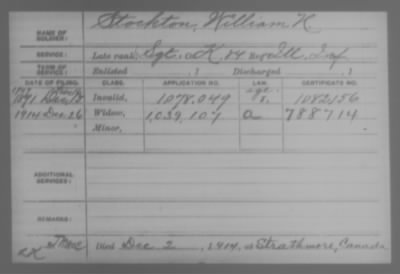 NAME OF SOLDIER: Stockton, William H.
SERVICE: Late rank, Sgt. Co. K, 84 Reg't Ill. Inf.
TERM OF SERVICE: Enlisted , 1 Discharged , 1
DATE OF FILING. CLASS. APPLICATION NO. LAW. CERTIFICATE NO.
1891 Invalid, 1078.049 1082,156
1914 Dec 26 Widow, 1,039,107 a 788714
Minor,
ADDITIONAL SERVICES:
REMARKS:
Died Dec 2, 1914, at Strathmore, Canada